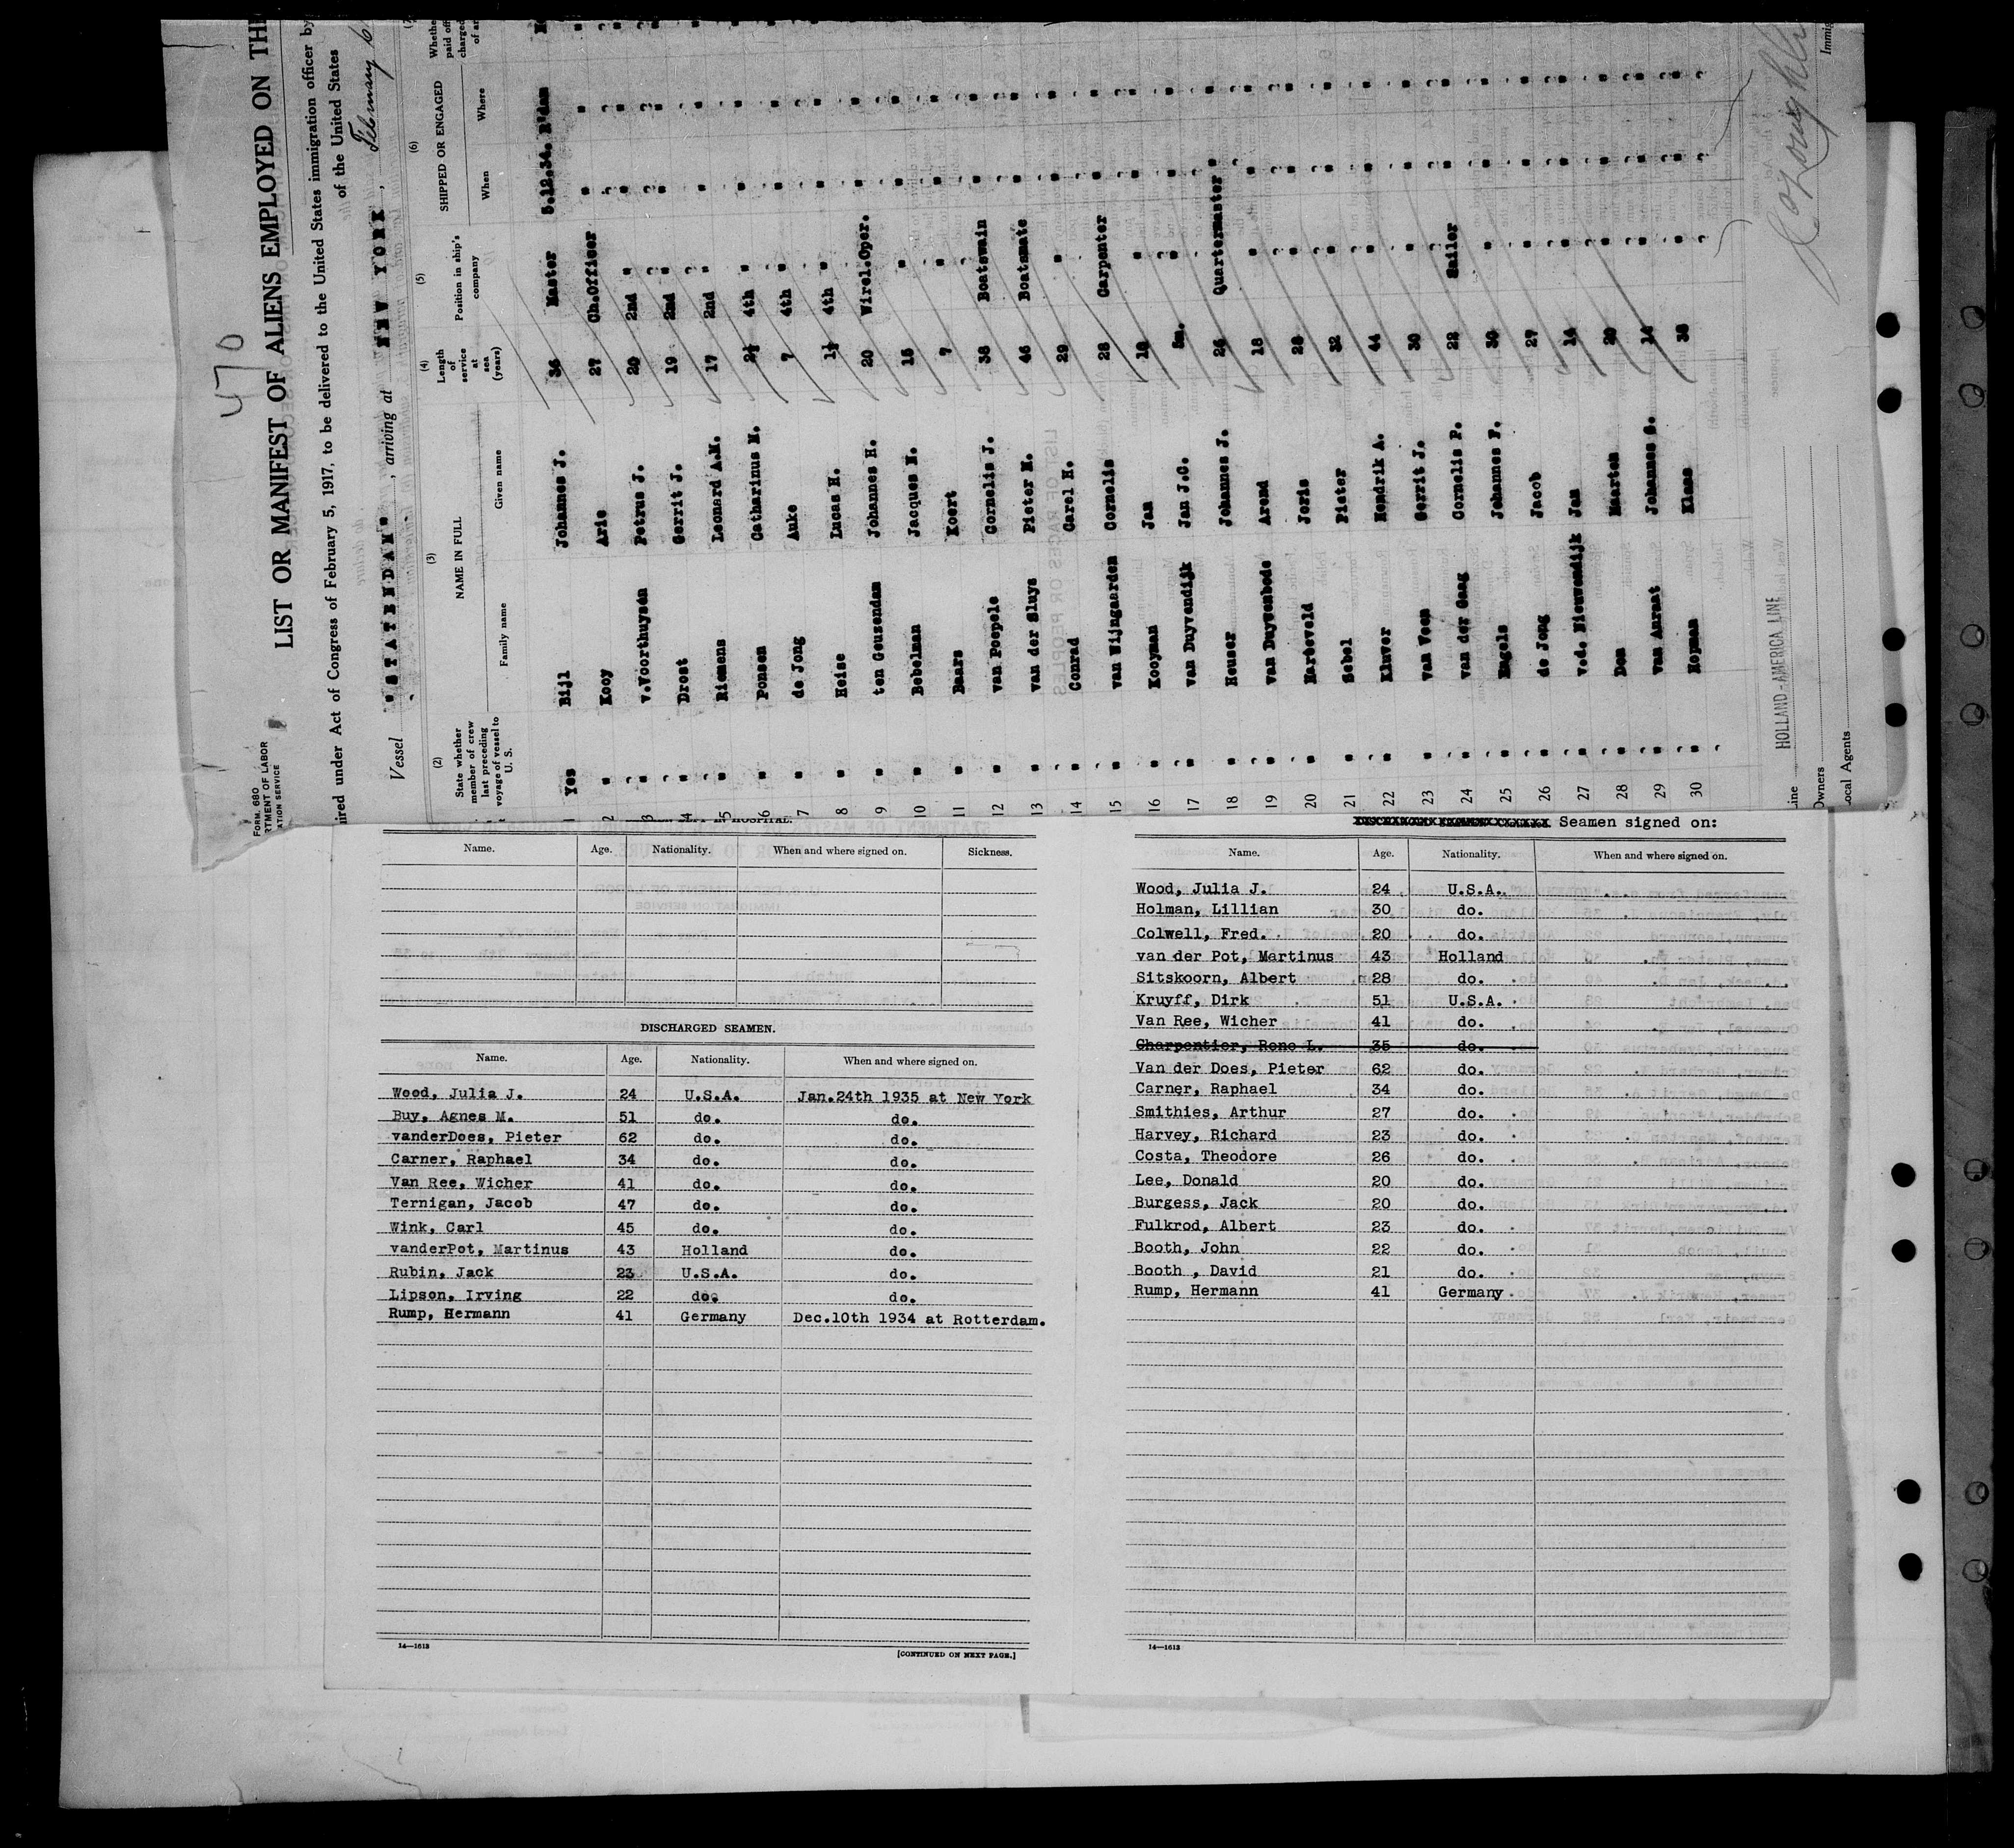 470
LIST OR MANIFEST OF ALIENS EMPLOYED ON THE
FORM 680
RTMENT OF LABOR
ATION SERVICE
ired under Act of Congress of February 5, 1917, to be delivered to the United States immigration officer by
of the United States
Vessel "STATENDAM", arriving at NEW YORK, February 6
(2) (3) (4) (5) (6)
State whether member of crew last preceding voyage of vessel to U. S. NAME IN FULL Length of service at sea (years) Position in ship's company SHIPPED OR ENGAGED
Family name Given name When Where
1 Yes Bijl Johannes J. 36 Master 5.12.34. R'dam
2 " Kooy Arie 27 Ch.Officer " "
3 " v.Voorthuysen Petrus J. 20 2nd " " "
4 " Drost Gerrit J. 19 2nd " " "
5 " Riemens Leonard A.M. 17 2nd " " "
6 " Ponsen Catharinus M. 2½ 4th " " "
7 " de Jong Auke 7 4th " " "
8 " Heise Lucas H. 1½ 4th " " "
9 " ten Geuzendam Johannes H. 20 Wirel.Oper. " "
10 " Bebelman Jacques N. 15 " " "
11 " Baars Koert 7 " " "
12 " van Poepele Cornelis J. 38 Boatswain " "
13 " van der Sluys Pieter M. 46 Boatsmate " "
14 " Conrad Carel H. 29 " " "
15 " van Wijngaarden Cornelis 28 Carpenter " "
16 " Kooyman Jan " " "
17 " van Duyvendijk Jan J.C. " " "
18 " Heuser Johannes J. 24 Quartermaster " "
19 " van Duyvenbode Arend 18 " " "
20 " Joris 28 " " "
21 " Sebel Pieter 32 " " "
22 " Kluver Hendrik A. 44 " " "
23 " van Veen Gerrit J. 30 " " "
24 " van der Gaag Cornelis P. 22 Sailer " "
25 " Engels Johannes F. 30 " " "
26 " de Jong Jacob 27 " " "
27 " v.d. Nieuwendijk Jan 14 " " "
28 " Maarten " " "
29 " van Anraat Johannes " " "
30 " Hopman Klaas 38 " " "
Line HOLLAND-AMERICA LINE
Owners
Local Agents
Immig
Name. Age. Nationality. When and where signed on. Sickness.
DISCHARGED SEAMEN.
Name. Age. Nationality. When and where signed on.
Wood, Julia J. 24 U.S.A. Jan.24th 1935 at New York
Buy, Agnes M. 51 do. do.
vanderDoes, Pieter 62 do. do.
Carner, Raphael 34 do. do.
Van Ree, Wicher 41 do. do.
Ternigan, Jacob 47 do. do.
Wink, Carl 45 do. do.
vanderPot, Martinus 43 Holland do.
Rubin, Jack 23 U.S.A. do.
Lipson, Irving 22 do. do.
Rump, Hermann 41 Germany Dec.10th 1934 at Rotterdam.
14—1613
[CONTINUED ON NEXT PAGE.]
Seamen signed on:
Name. Age. Nationality. When and where signed on.
Wood, Julia J. 24 U.S.A.
Holman, Lillian 30 do.
Colwell, Fred. 20 do.
van der Pot, Martinus 43 Holland
Sitskoorn, Albert 28 do.
Kruyff, Dirk 51 U.S.A.
Van Ree, Wicher 41 do.
Charpentier, Rene L. 35 do.
Van der Does, Pieter 62 do.
Carner, Raphael 34 do.
Smithies, Arthur 27 do.
Harvey, Richard 23 do.
Costa, Theodore 26 do.
Lee, Donald 20 do.
Burgess, Jack 20 do.
Fulkrod, Albert 23 do.
Booth, John 22 do.
Booth , David 21 do.
Rump, Hermann 41 Germany
14—1613